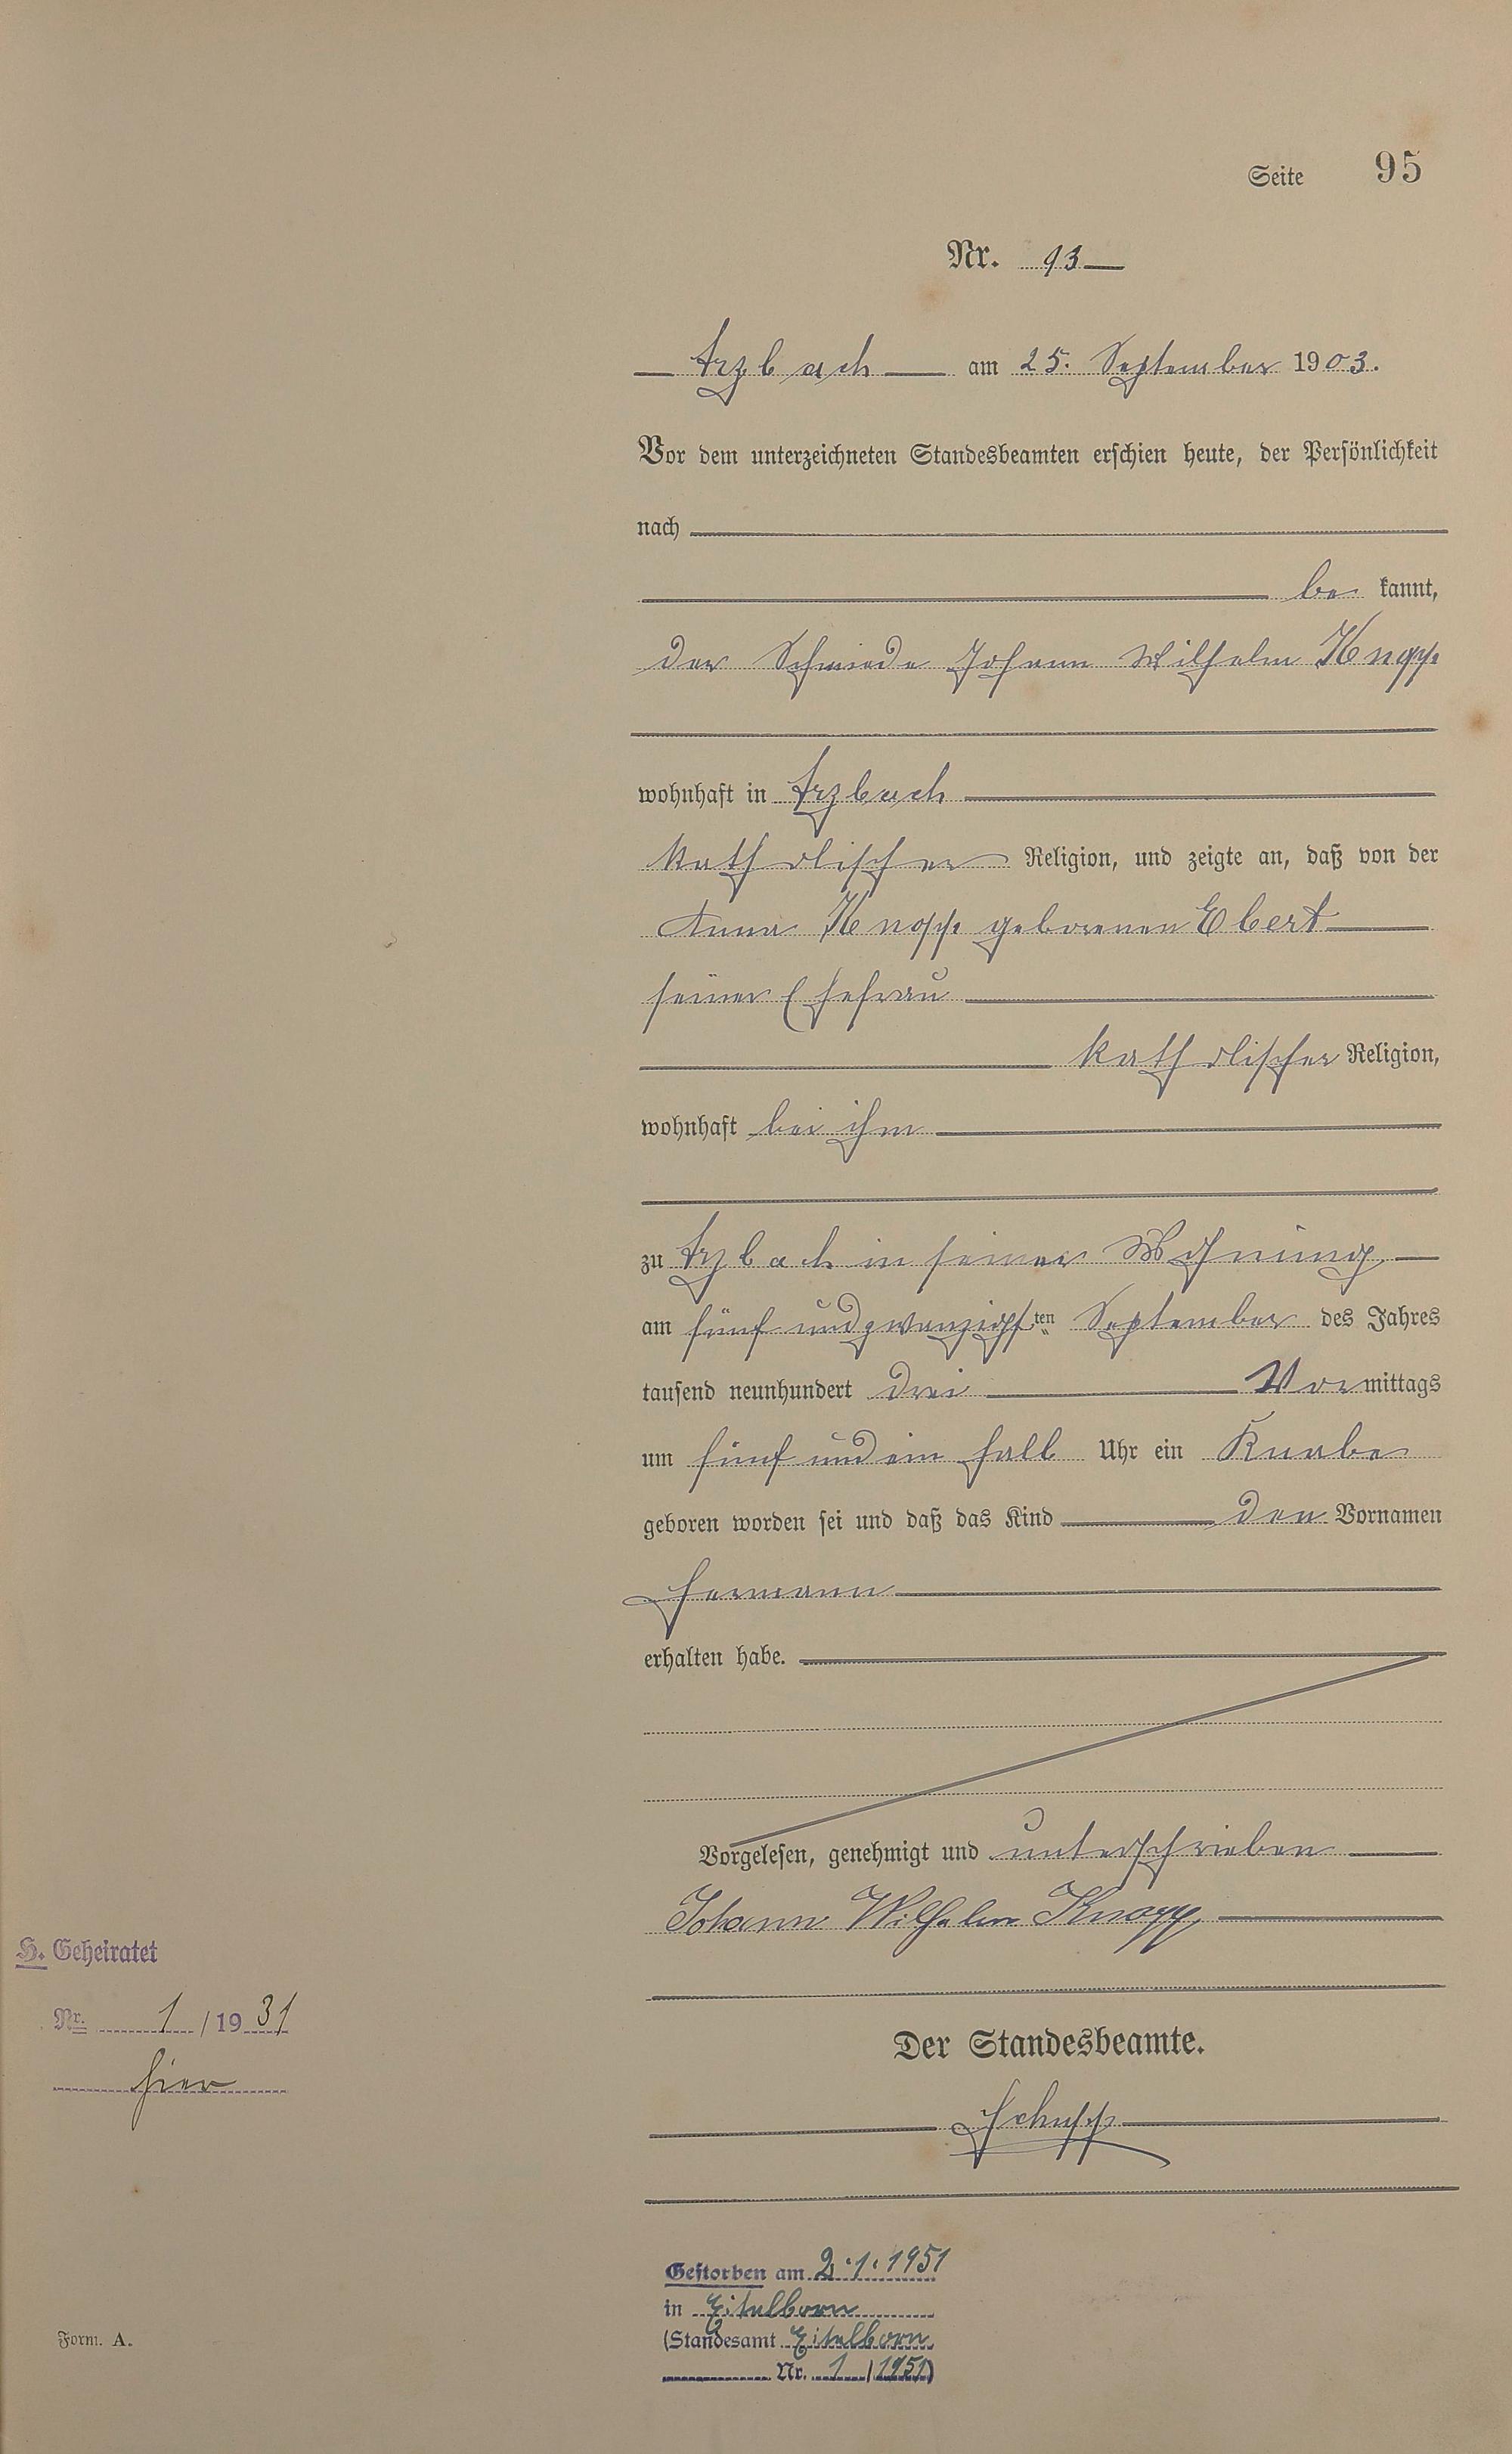 Seite 95
Nr. 93
Arzbach am 25. September 1903.
Vor dem unterzeichneten Standesbeamten erschien heute, der Persönlichkeit
nach
be kannt,
der Schmied Johann Wilhelm Knopp
wohnhaft in Arzbach
katholischer Religion, und zeigte an, daß von der
Anna Knopp geborenen Ebert
seiner Ehefrau
katholischer Religion,
wohnhaft bei ihm
zu Arzbach in seiner Wohnung
am fünf und zwanzigsten September des Jahres
tausend neunhundert drei Vormittags
um fünf und ein halb Uhr ein Knabe
geboren worden sei und daß das Kind den Vornamen
Hermann
erhalten habe.
Vorgelesen, genehmigt und unterschrieben
Johann Wilhelm Knopp
H. Geheiratet
Nr. 1/1931
hier
Der Standesbeamte.
Schupp
Gestorben am 2.1.1951
in Eitelborn
(Standesamt Eitelborn
Nr. 1/1951)
Form. A.